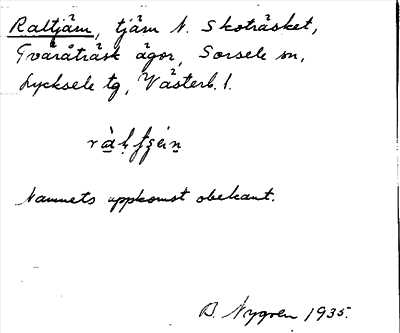 Raltjärn, tjärn N. Skoträsket,
Gvåråträsk ägor, Sorsele sn,
Lycksele tg, Västerb. l.
Namnets uppkomst obekant.
B. Nygren 1935.